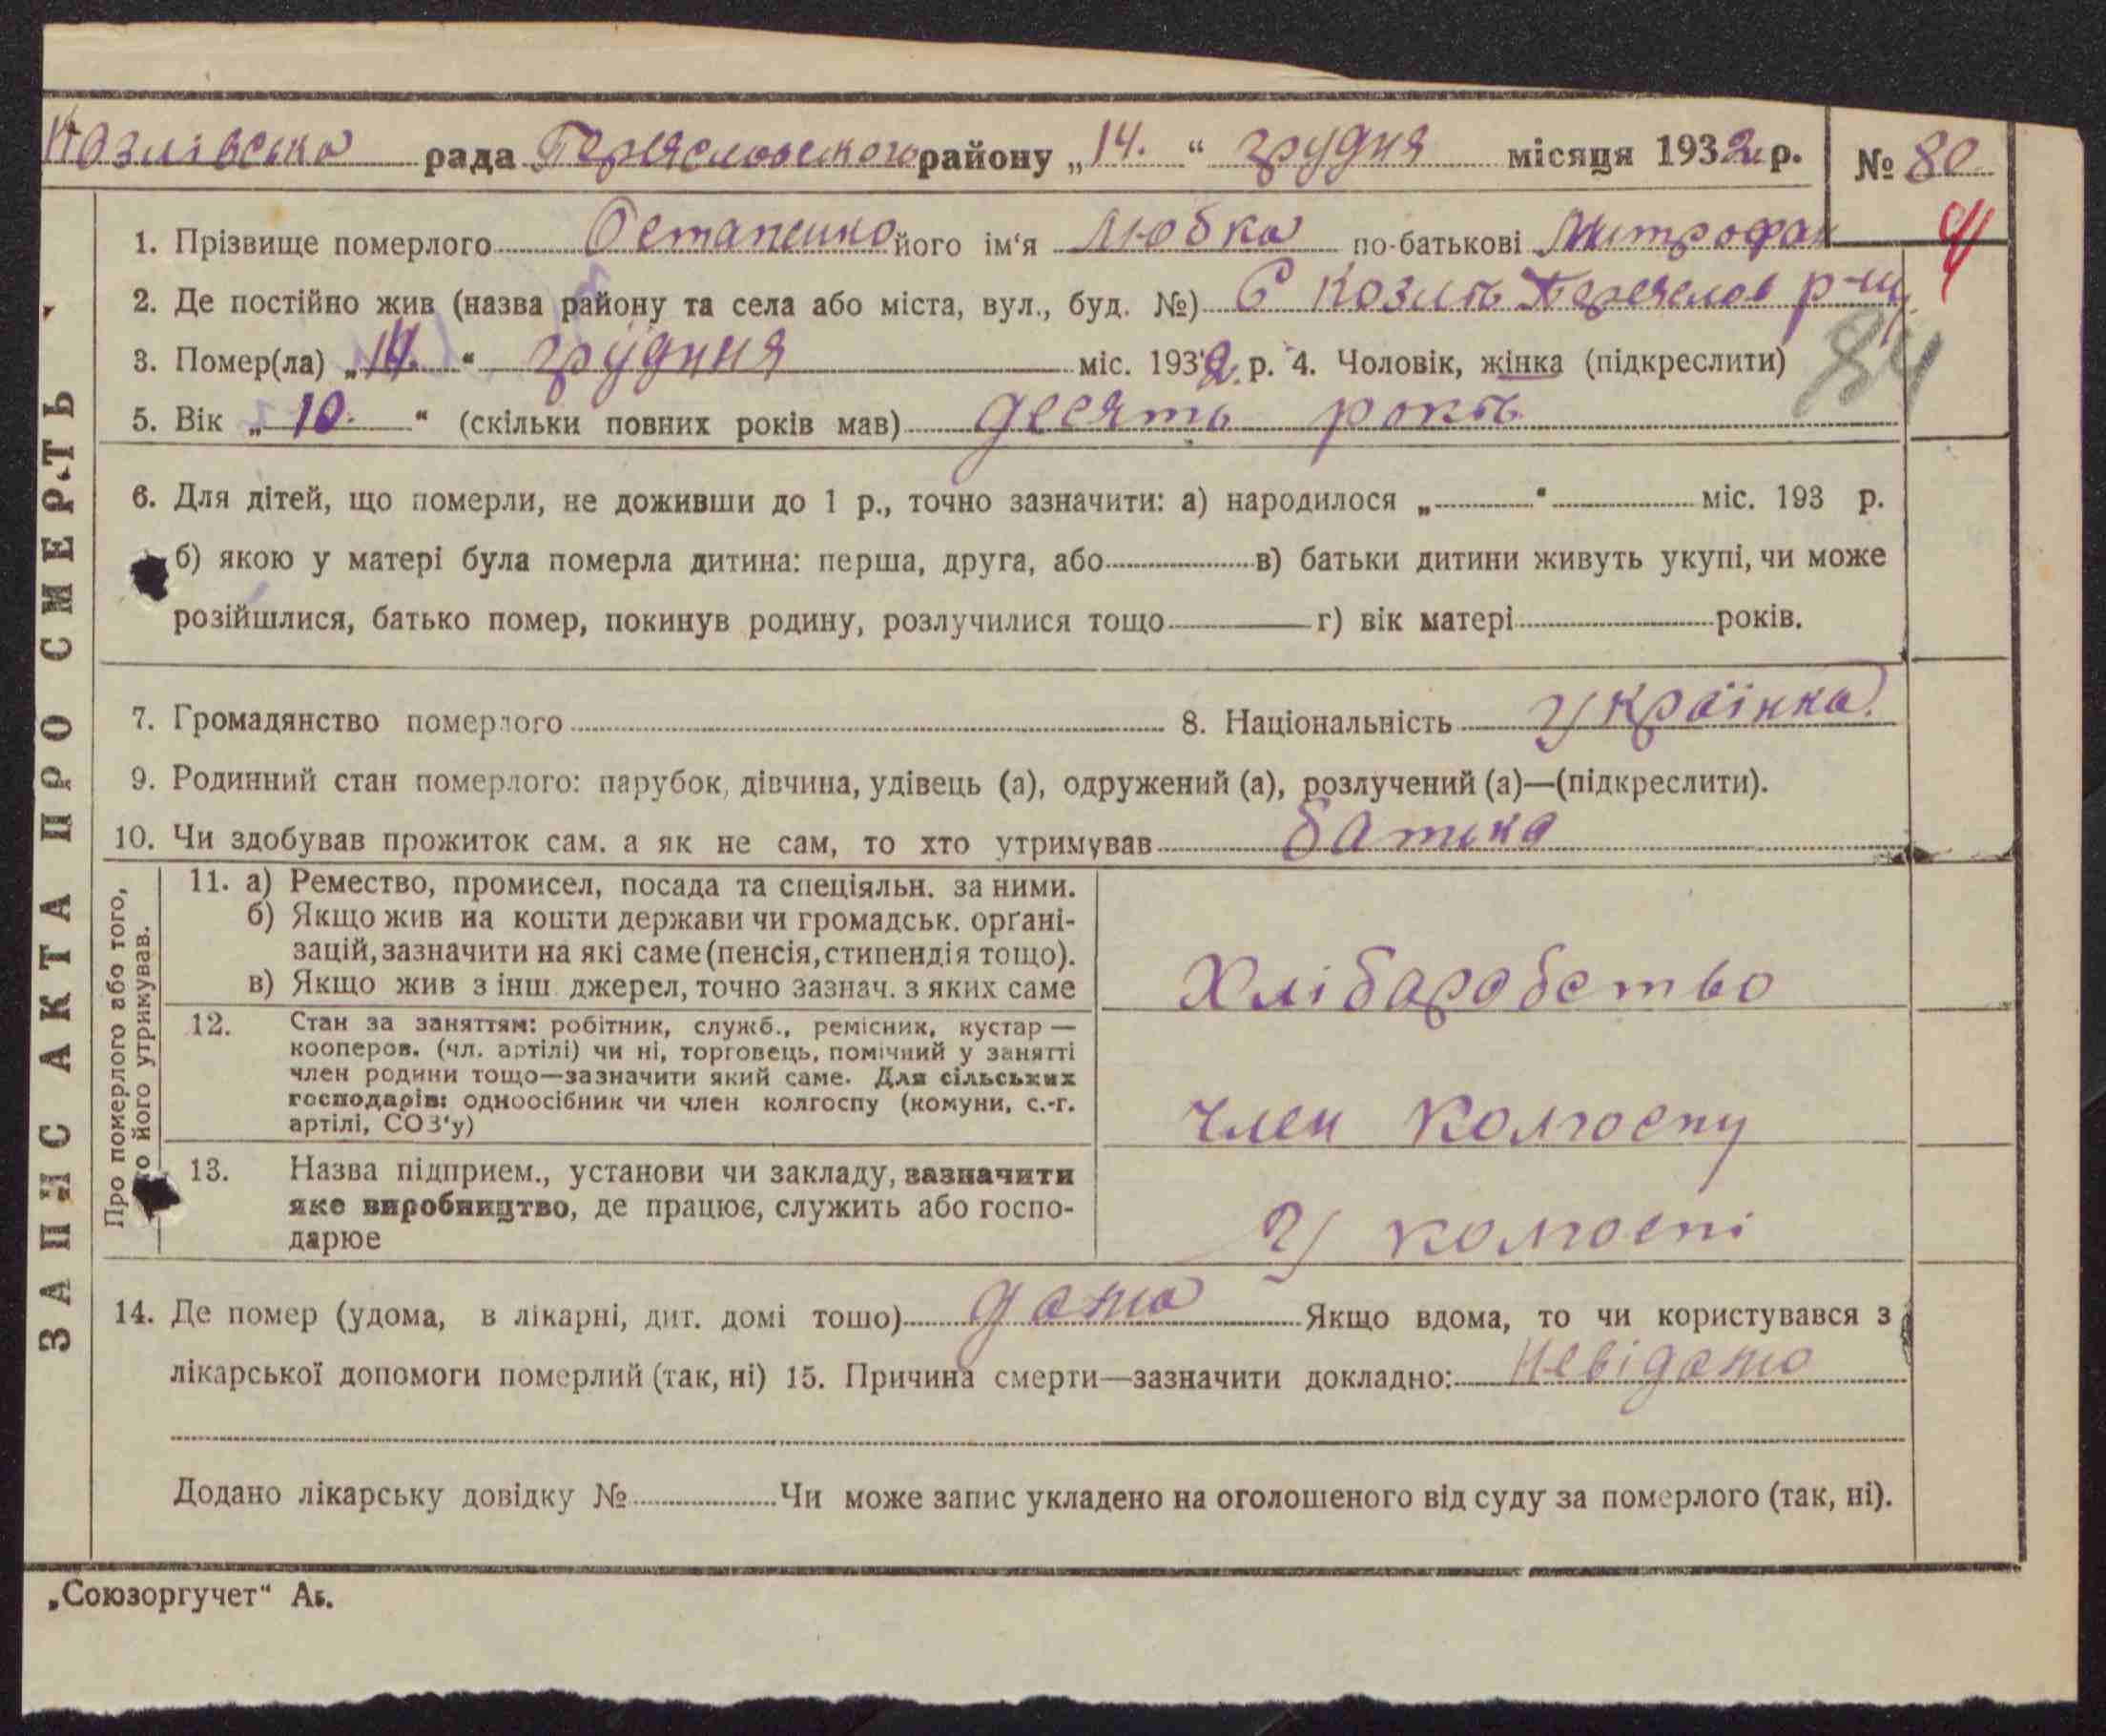 Козлівська рада Переясловського району „14.“ грудня місяця 1932 р. № 80
1. Прізвище померлого Остапенко його ім‘я Любка по-батькові Митрофан
2. Де постійно жив (назва району та села або міста, вул., буд. №) С Козлів Переяслов р-ну
3. Помер(ла) „14.“ грудння міс. 1932. р. 4. Чоловік, жінка (підкреслити)
84
5. Вік „10.“ (скільки повних років мав) десять років
6. Для дітей, що померли, не доживши до 1 р., точно зазначити: а) народилося „ “ міс. 193 р.
б) якою у матері була померла дитина: перша, друга, або в) батьки дитини живуть укупі, чи може
розійшлися, батько помер, покинув родину, розлучилися тощо г) вік матері років.
7. Громадянство померлого 8. Національність Українка
9. Родинний стан померлого: парубок, дівчина, удівець (а), одружений (а), розлучений (а)—(підкреслити).
10. Чи здобував прожиток сам. а як не сам, то хто утримував батька
11. а) Ремество, промисел, посада та спеціяльн. за ними.
б) Якщо жив на кошти держави чи громадськ. орґані-
зацій, зазначити на які саме (пенсія, стипендія тощо).
в) Якщо жив з інш. джерел, точно зазнач. з яких саме
Хлібаробство
12. Стан за заняттям: робітник, служб., ремісник, кустар —
кооперов. (чл. артілі) чи ні, торговець, помічний у занятті
член родини тощо—зазначити який саме. Для сільських
господарів: одноосібник чи член колгоспу (комуни, с.-г.
артілі, СОЗ‘у)
член колгоспу
13. Назва підприєм., установи чи закладу, зазначити
яке виробництво, де працює, служить або госпо-
дарює
У колгоспі
14. Де помер (удома, в лікарні, дит. домі тощо) дома Якщо вдома, то чи користувався з
лікарської допомоги померлий (так, ні) 15. Причина смерти—зазначити докладно: Невідомо
Додано лікарську довідку № Чи може запис укладено на оголошеного від суду за померлого (так, ні).
„Союзоргучет“ Аб.
ЗАПИС АКТА ПРО СМЕРТЬ
Про померлого або того,
хто його утримував.